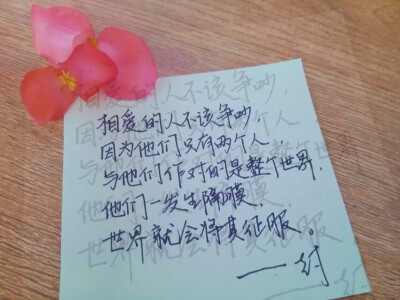 相爱的人不该争吵,
因为他们只有两个人
与他们作对的是整个世界.
他们一发生隔膜,
世界就会将其征服。